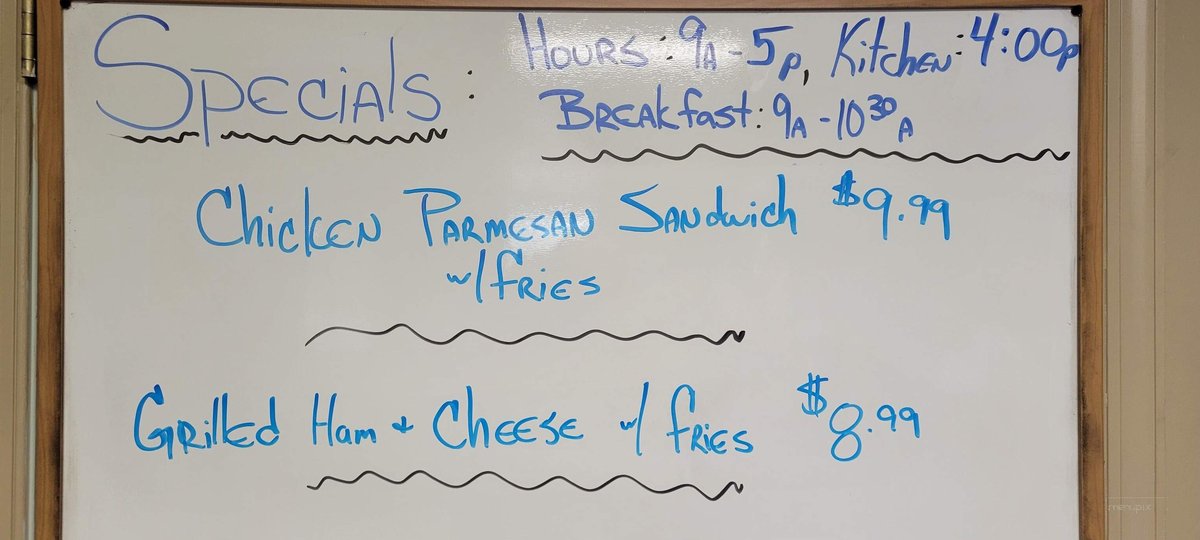 Specials:
Hours: 9A-5p, Kitchen: 4:00p
Breakfast: 9A-10 30 A
Chicken Parmesan Sandwich $9.99
w/ fries
Grilled Ham + Cheese w/ fries $8.99
menupix